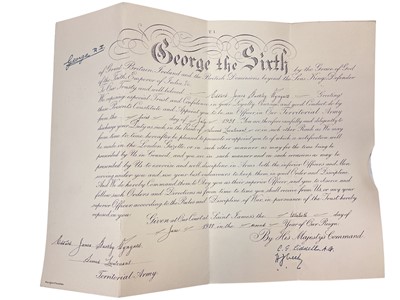 George R.I.
George the Sixth
by the Grace of God
of Great Britain, Ireland and the British Dominions beyond the Seas King, Defender
of the Faith, Emperor of India &c.
To Our Trusty and well beloved James Greeting
We reposing especial Trust and Confidence in your Loyalty, Courage, and good Conduct do by
these Presents Constitute and Appoint you to be an Officer in Our Territorial Army
from the first day of July 1938. You are therefore carefully and diligently to
discharge your Duty as such in the Rank of Second Lieutenant or in such other Rank as We may
from time to time hereafter be pleased to promote or appoint you to of which a notification will
be made in the London Gazette, or in such other manner as may for the time being be
prescribed by Us in Council, and you are in such manner and on such occasions as may be
prescribed by Us to exercise and well discipline in Arms both the inferior Officers and Men
serving under you and use your best endeavours to keep them in good Order and Discipline.
And We do hereby Command them to Obey you as their superior Officer, and you to observe and
follow such Orders and Directions as from time to time you shall receive from Us, or any your
superior Officer, according to the Rules and Discipline of War, in pursuance of the Trust hereby
reposed in you.
Given at Our Court, at Saint James's the day of
June 1938 in the Year of Our Reign
By His Majesty's Command
James
Second Lieutenant
Territorial Army